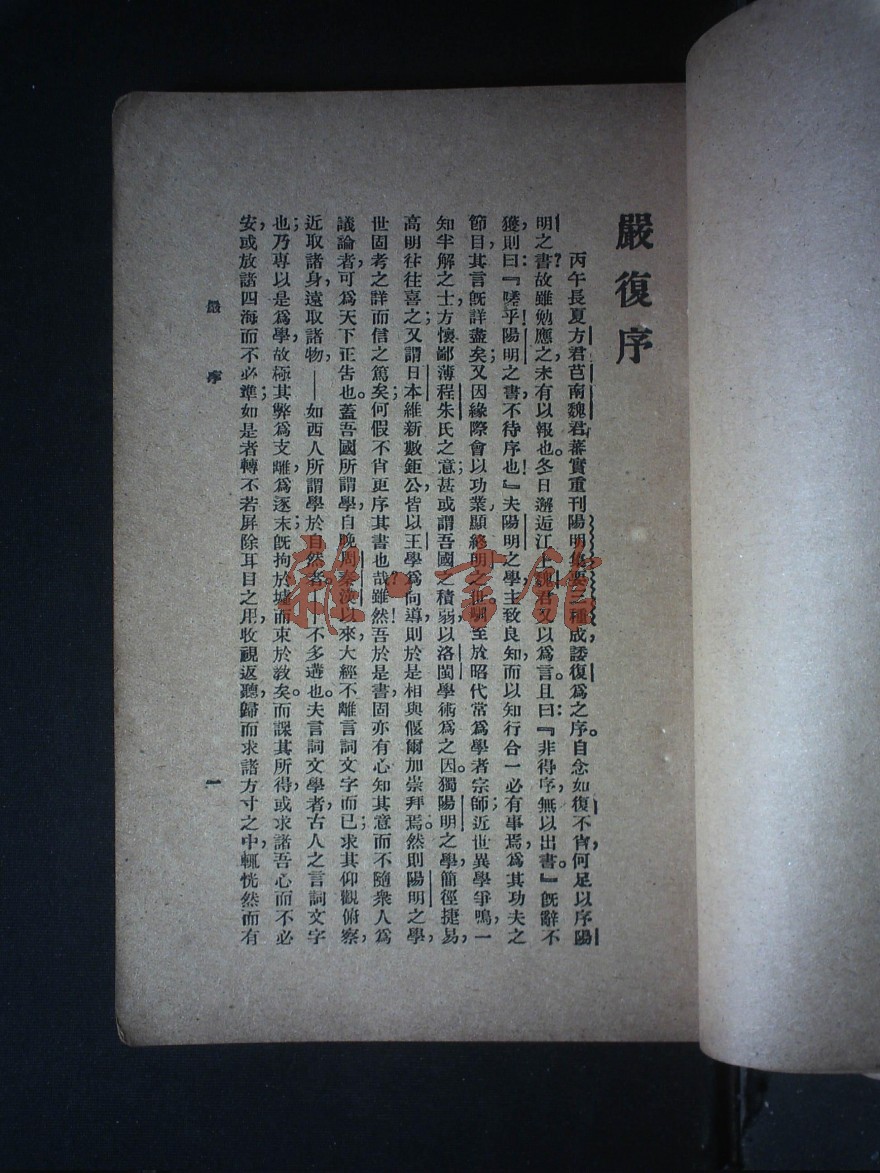 嚴復序
丙午長夏方君芑南魏君蕃實重刊陽明集要三種成諉復爲之序。自念如復不肖，何足以序陽
明之書？故雖勉應之，未有以報也。冬日邂逅江上，魏君又以爲言。且曰：『非得序，無以出書。』旣辭不
獲，則曰：『嗟乎！陽明之書，不待序也！』夫陽明之學，主致良知，而以知行合一必有事焉，爲其功夫之
節目。其言旣詳盡矣；又因緣際會，以功業顯終明之世。馴至於昭代，常爲學者宗師；近世異學爭鳴，一
知半解之士，方懷鄙薄程朱氏之意；甚或謂吾國之積弱，以洛閩學術爲之因。獨陽明之學，簡徑捷易，
高明往往喜之；又謂日本維新數鉅公，皆以王學爲向導，則於是相與偃爾加崇拜焉。然則陽明之學，
世固考之詳而信之篤矣；何假不肖更序其書也哉？雖然！吾於是書，固亦有心知其意，而不隨衆人爲
議論者，可爲天下正告也。蓋吾國所謂學，自晚周秦漢以來，大經不離言詞文字而已；求其仰觀俯察，
近取諸身，遠取諸物——如西人所謂學於自然者。——不多遘也。夫言詞文學者，古人之言詞文字
也；乃專以是爲學，故極其弊，爲支離，爲逐末；旣拘於墟而束於教矣。而課其所得，或求諸吾心而不必
安，或放諸四海而不必準；如是者，轉不若屏除耳目之用，收視返聽，歸而求諸方寸之中，輒恍然而有
嚴　序
一
雜·書館